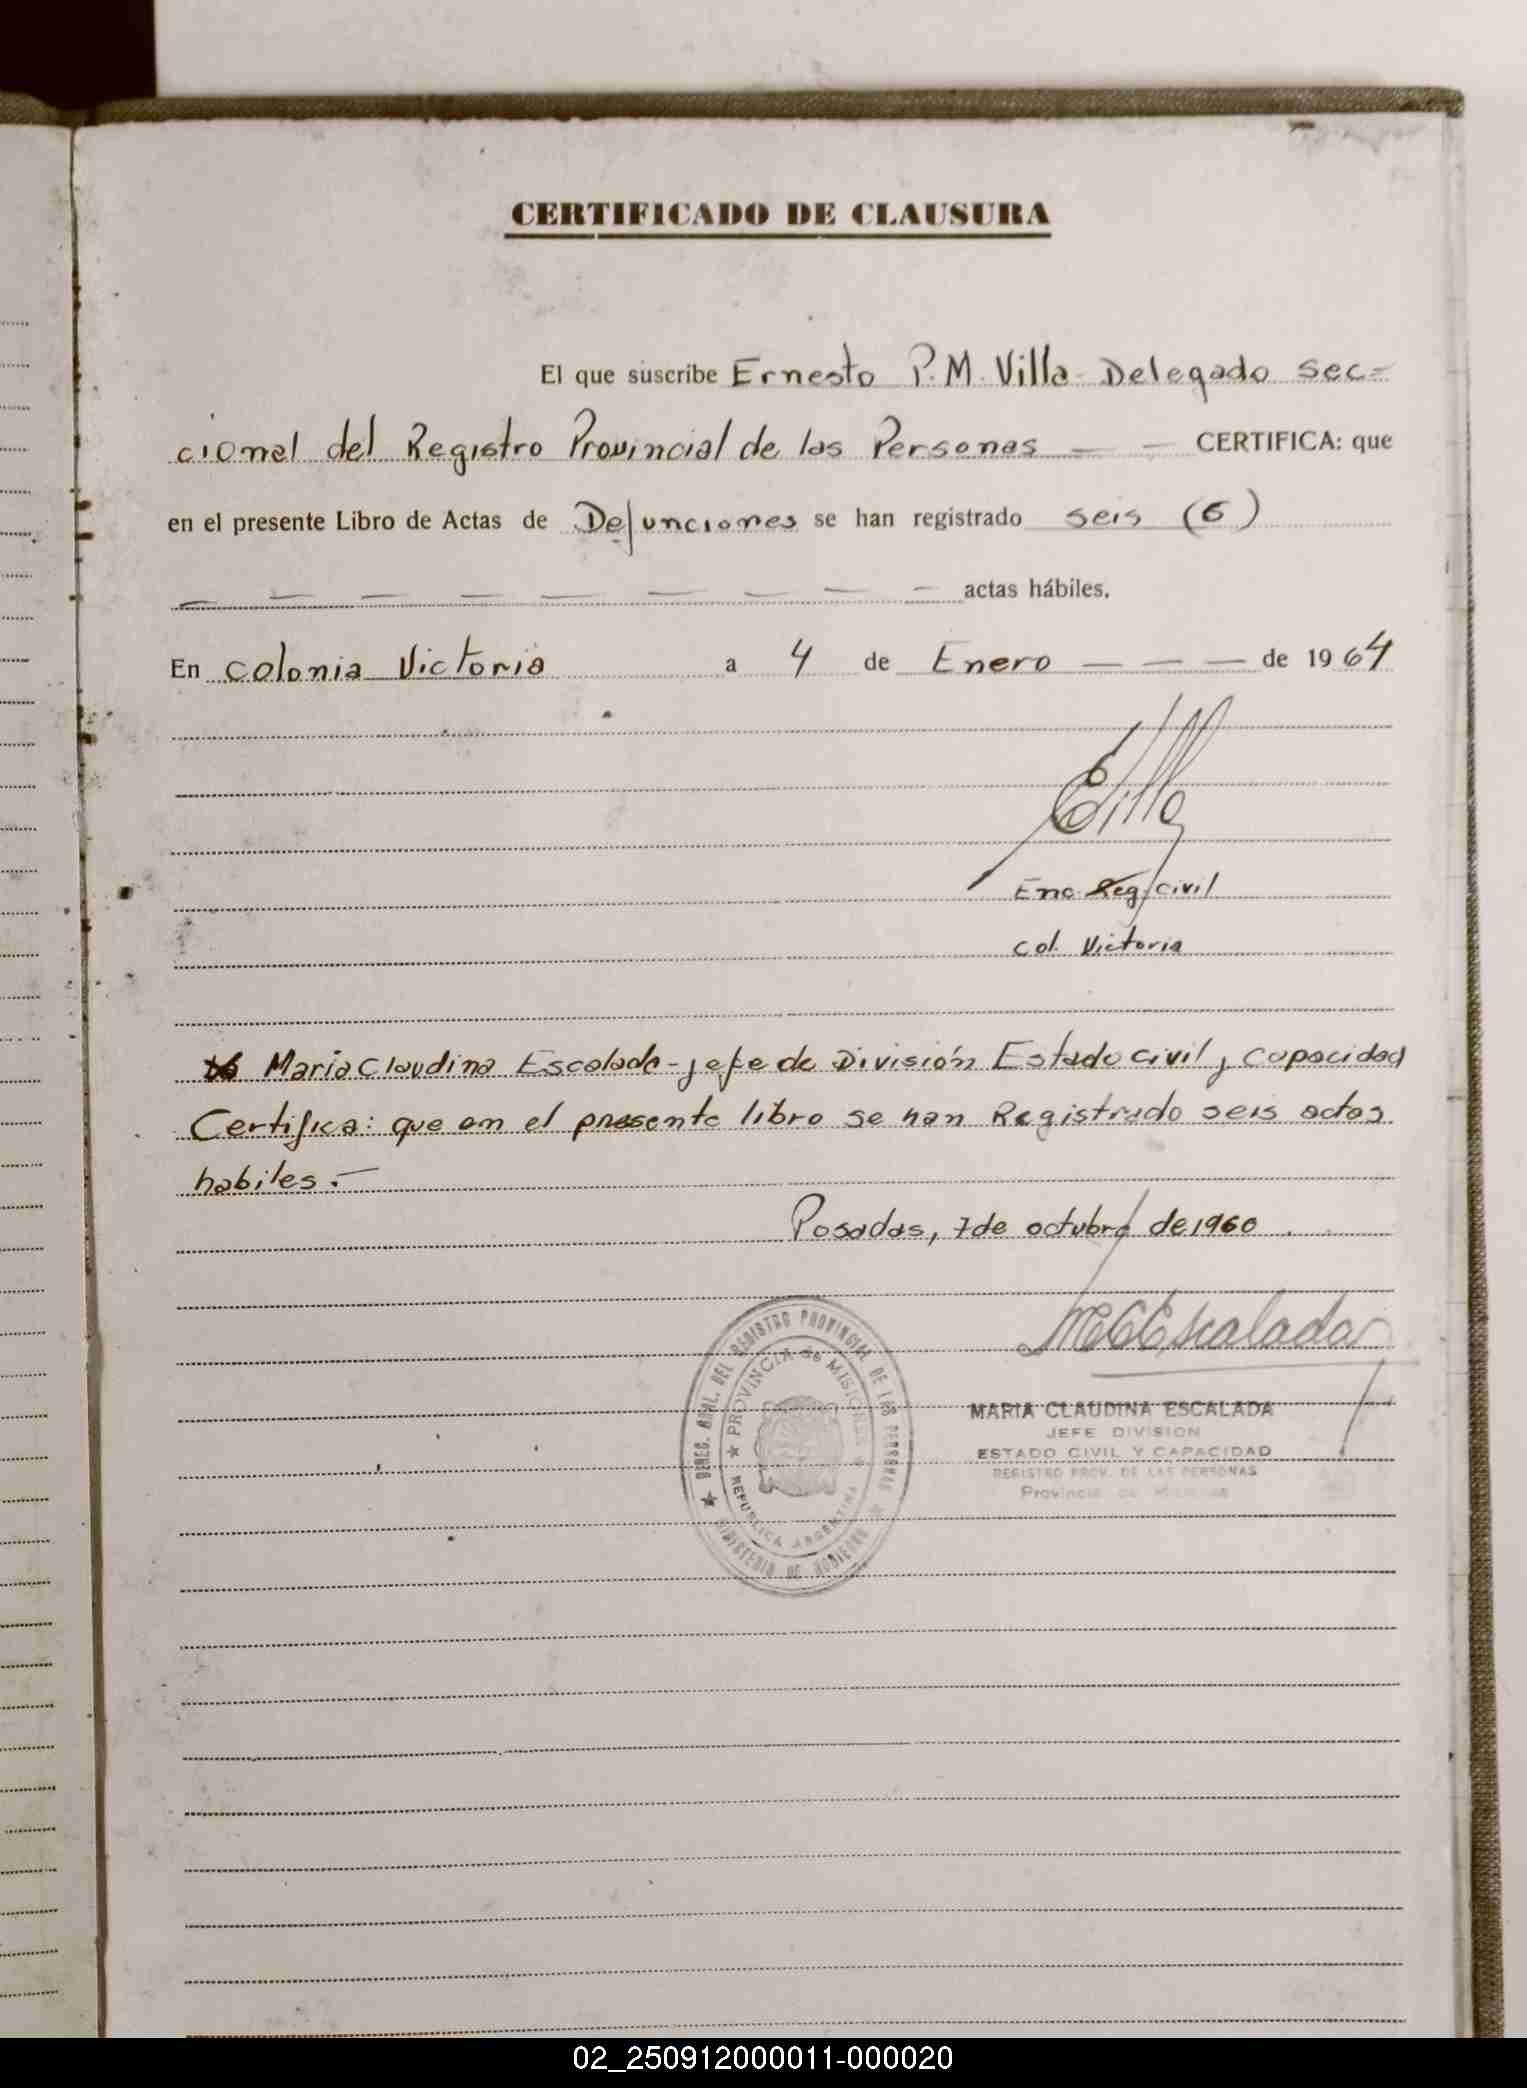 CERTIFICADO DE CLAUSURA
El que suscribe Ernesto P. M. Villa Delegado Sec=
cional del Registro Provincial de las Personas — — CERTIFICA: que
en el presente Libro de Actas de Defunciones se han registrado seis (6)
— — — — — — — — — actas hábiles.
En Colonia Victoria a 4 de Enero — — — de 1964
EVilla
Enc. Reg. civil
Col. Victoria
Maria Claudina Escalada - jefe de División Estado civil y Capacidad
Certifica: que en el presente libro se han Registrado seis actas
habiles.—
Posadas, 7 de octubre de 1960
MCEscalada
MARIA CLAUDINA ESCALADA
JEFE DIVISION
ESTADO CIVIL Y CAPACIDAD
REGISTRO PROV. DE LAS PERSONAS
Provincia de Misiones
★ DIREC. GRAL. DEL REGISTRO PROVINCIAL DE LAS PERSONAS ★
MINISTERIO DE GOBIERNO
★ PROVINCIA de MISIONES ★
REPUBLICA ARGENTINA
02_250912000011-000020